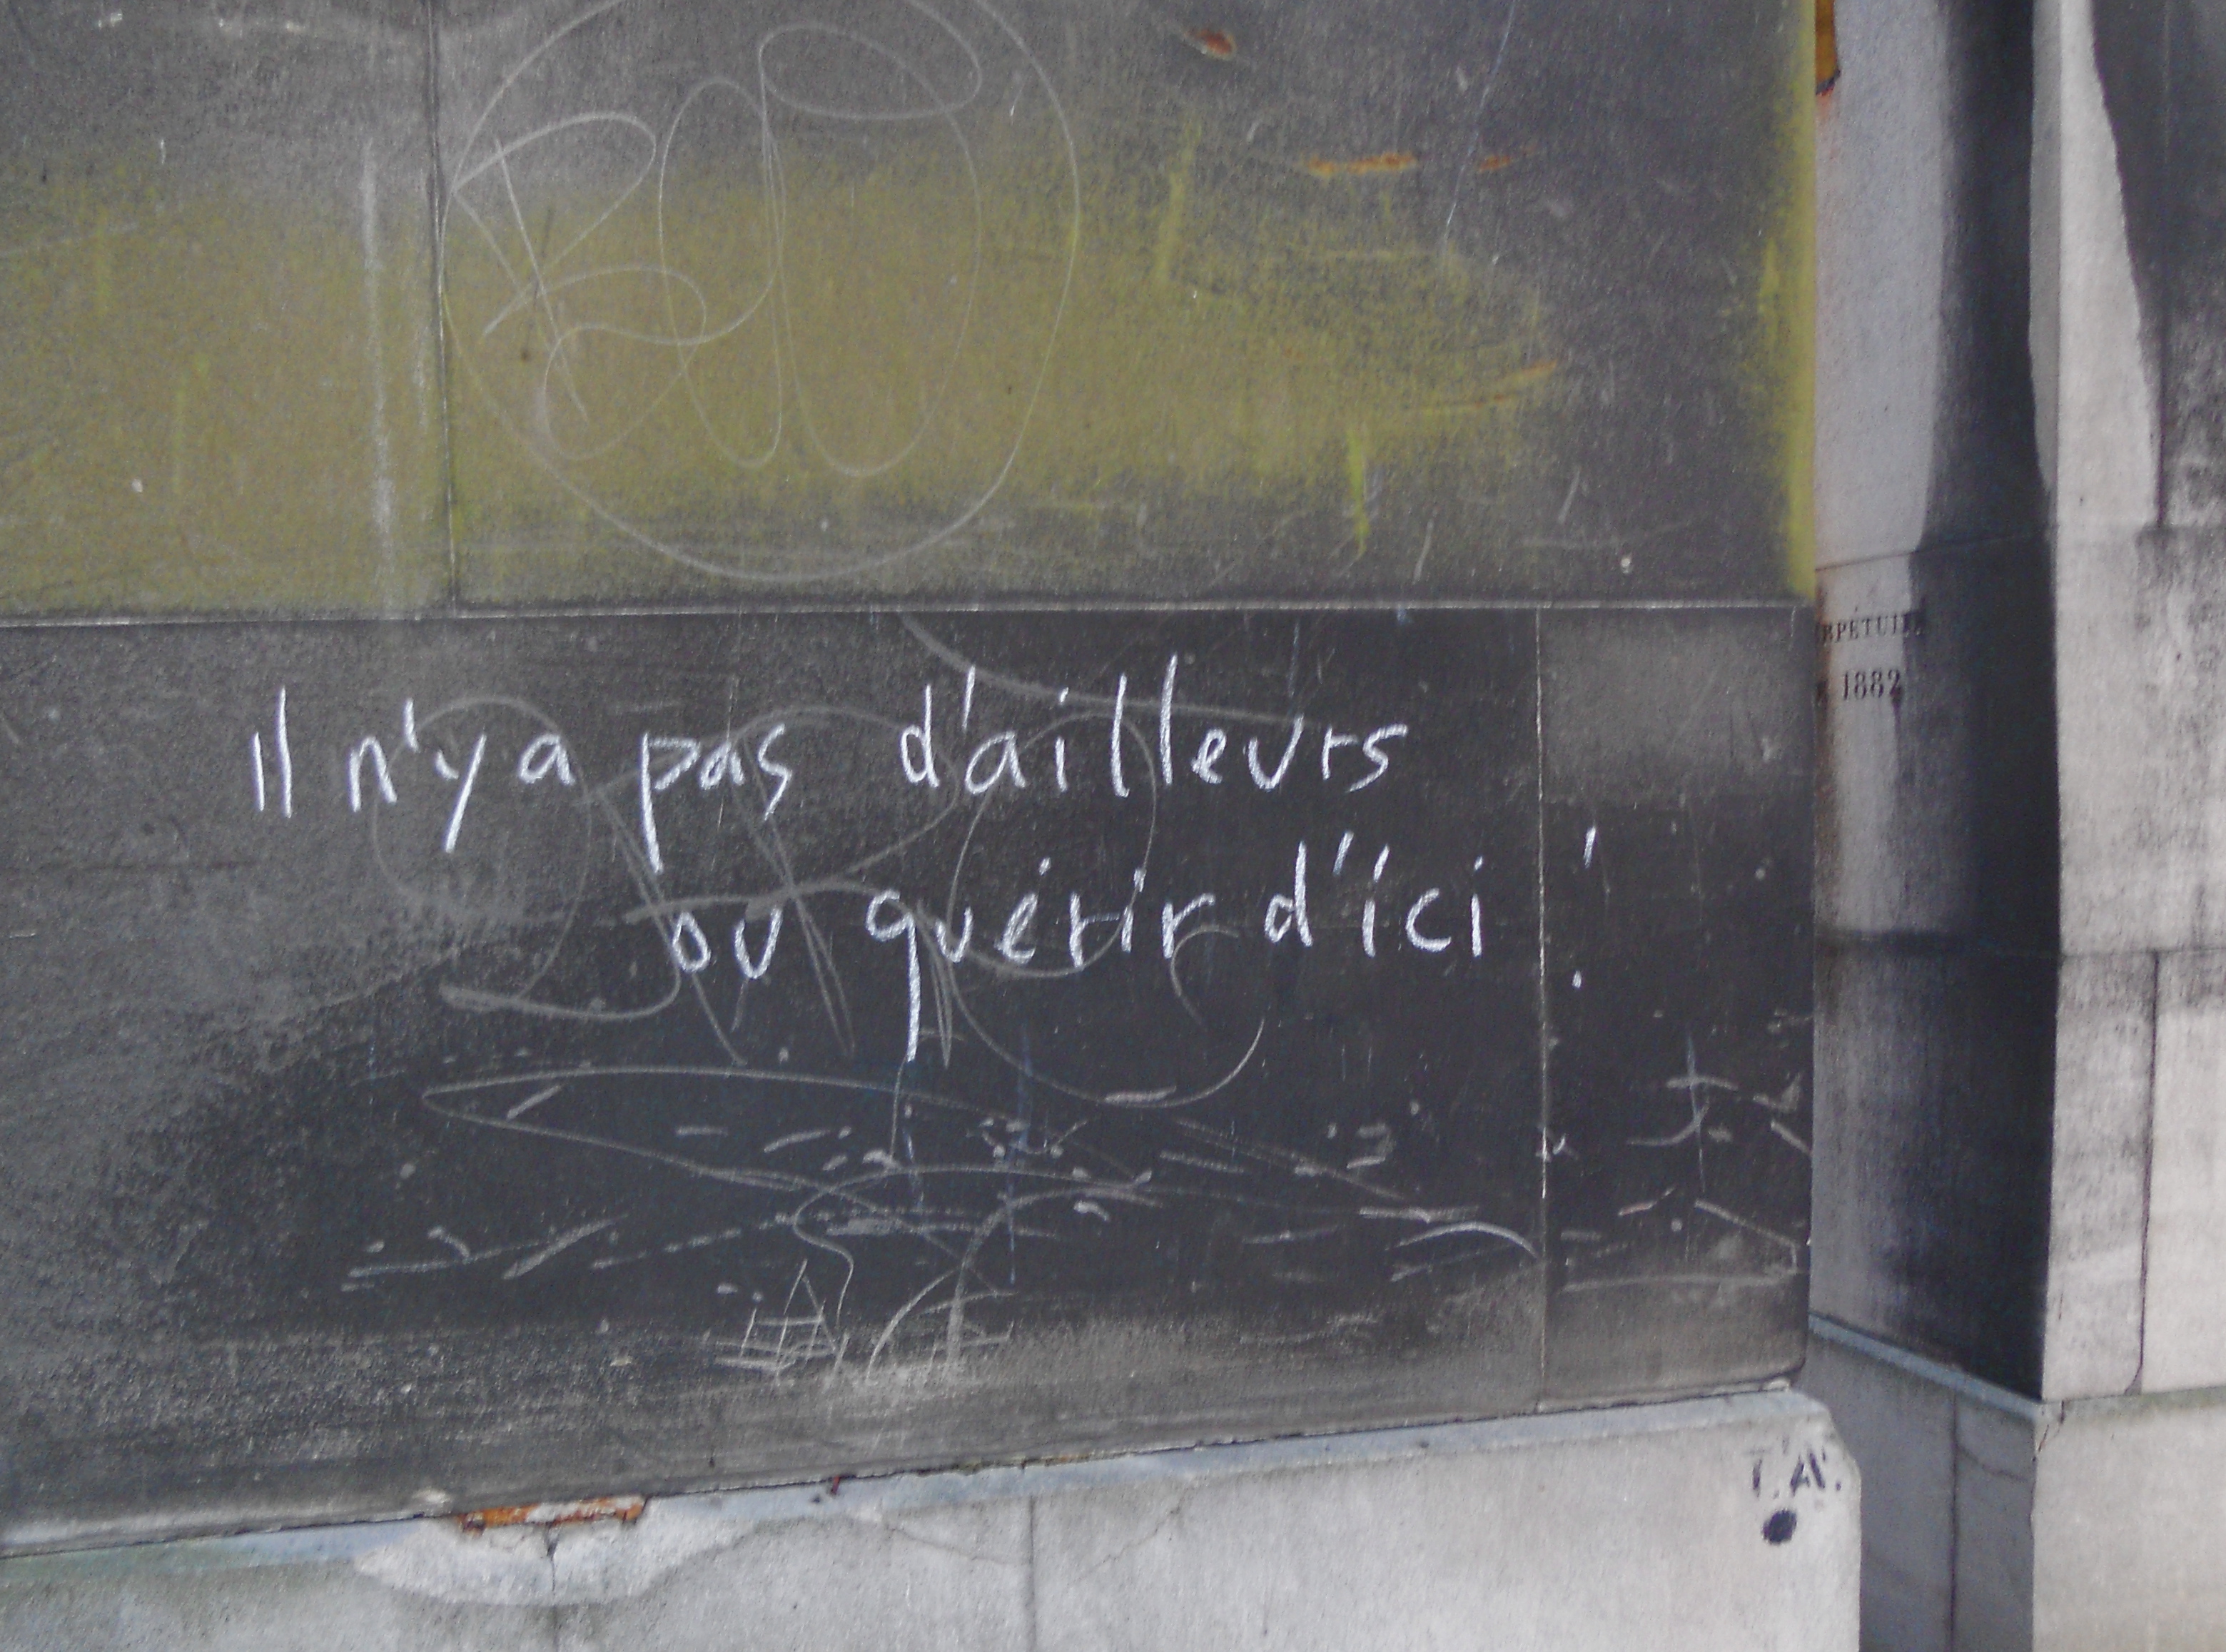 Il n'y a pas d'ailleurs
ou guérir d'ici !
RPÉTUI
1882
T.A.